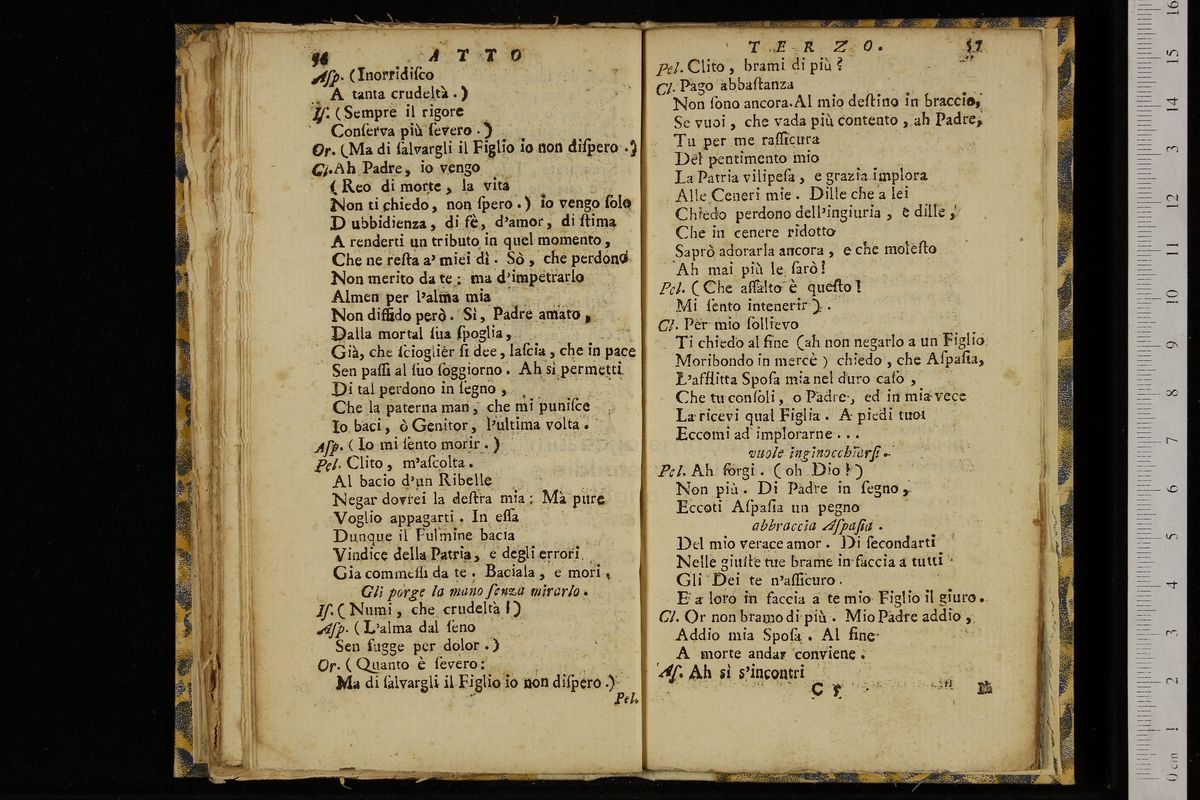 56 ATTO
Aſp. (Inorridiſco
A tanta crudeltà.)
Iſ. (Sempre il rigore
Conſerva più ſevero.)
Or. (Ma di ſalvargli il Figlio io non diſpero.)
Cl. Ah Padre, io vengo
(Reo di morte, la vita
Non ti chiedo, non ſpero.) io vengo ſolo
D ubbidienza, di fè, d'amor, di ſtima
A renderti un tributo in quel momento,
Che ne reſta a' miei dì. Sò, che perdono
Non merito da te; ma d'impetrarlo
Almen per l'alma mia
Non diffido però. Sì, Padre amato,
Dalla mortal ſua ſpoglia,
Già, che ſcioglier ſi dee, laſcia, che in pace
Sen paſſi al ſuo ſoggiorno. Ah sì permetti
Di tal perdono in ſegno,
Che la paterna man, che mi puniſce
Io baci, ò Genitor, l'ultima volta.
Aſp. (Io mi ſento morir.)
Pel. Clito, m'aſcolta.
Al bacio d'un Ribelle
Negar dovrei la deſtra mia: Mà pure
Voglio appagarti. In eſſa
Dunque il Fulmine bacia
Vindice della Patria, e degli errori
Gia commeſſi da te. Baciala, e mori,
Gli porge la mano ſenza mirarlo.
Iſ. (Numi, che crudeltà!)
Aſp. (L'alma dal ſeno
Sen fugge per dolor.)
Or. (Quanto è ſevero:
Ma di ſalvargli il Figlio io non diſpero.)
Pel.
TERZO. 57
Pel. Clito, brami di più?
Cl. Pago abbaſtanza
Non ſono ancora. Al mio deſtino in braccio,
Se vuoi, che vada più contento, ah Padre,
Tu per me raſſicura
Del pentimento mio
La Patria vilipeſa, e grazia implora
Alle Ceneri mie. Dille che a lei
Chiedo perdono dell'ingiuria, e dille,
Che in cenere ridotto
Saprò adorarla ancora, e che moleſto
Ah mai più le ſarò!
Pel. (Che aſſalto è queſto!
Mi ſento intenerir).
Cl. Per mio ſollievo
Ti chiedo al fine (ah non negarlo a un Figlio
Moribondo in mercè) chiedo, che Aſpaſia,
L'afflitta Spoſa mia nel duro caſo,
Che tu conſoli, o Padre, ed in mia vece
La ricevi qual Figlia. A piedi tuoi
Eccomi ad implorarne...
vuole inginocchiarſi.
Pel. Ah ſorgi. (oh Dio!)
Non più. Di Padre in ſegno,
Eccoti Aſpaſia un pegno
abbraccia Aſpaſia.
Del mio verace amor. Di ſecondarti
Nelle giuſte tue brame in faccia a tutti
Gli Dei te n'aſſicuro.
E a loro in faccia a te mio Figlio il giuro.
Cl. Or non bramo di più. Mio Padre addio,
Addio mia Spoſa. Al fine
A morte andar conviene.
Aſ. Ah sì s'incontri
C 5